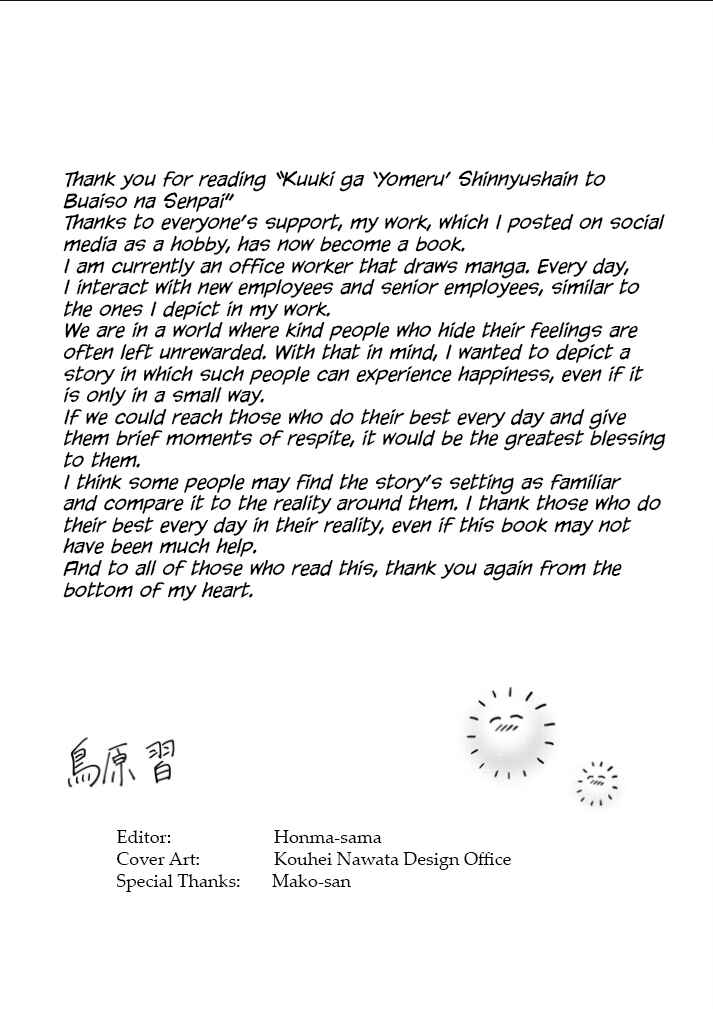 Thank you for reading "Kuuki ga 'Yomeru' Shinnyushain to
Buaiso na Senpai"
Thanks to everyone's support, my work, which I posted on social
media as a hobby, has now become a book.
I am currently an office worker that draws manga. Every day,
I interact with new employees and senior employees, similar to
the ones I depict in my work.
We are in a world where kind people who hide their feelings are
often left unrewarded. With that in mind, I wanted to depict a
story in which such people can experience happiness, even if it
is only in a small way.
If we could reach those who do their best every day and give
them brief moments of respite, it would be the greatest blessing
to them.
I think some people may find the story's setting as familiar
and compare it to the reality around them. I thank those who do
their best every day in their reality, even if this book may not
have been much help.
And to all of those who read this, thank you again from the
bottom of my heart.
鳥原 習
Editor: Honma-sama
Cover Art: Kouhei Nawata Design Office
Special Thanks: Mako-san